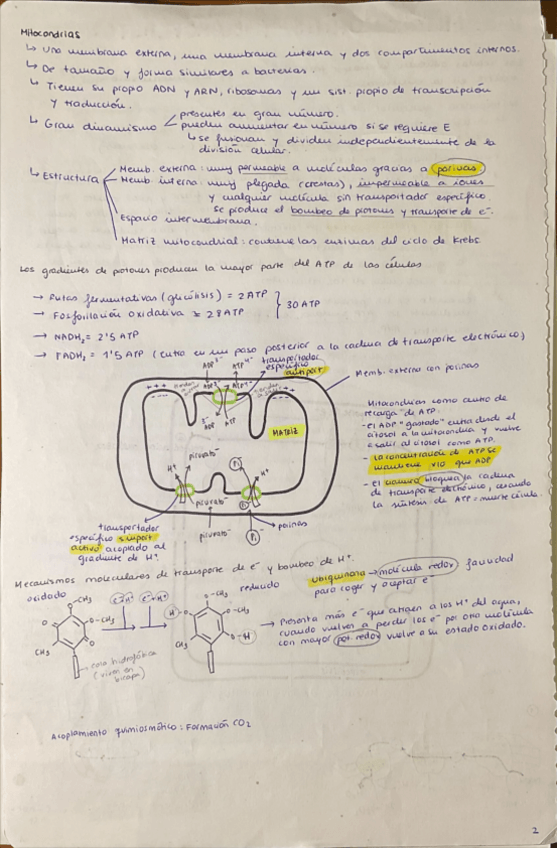 Mitocondrias
↳ Una membrana externa, una membrana interna y dos compartimentos internos.
↳ De tamaño y forma similares a bacterias.
↳ Tienen su propio ADN y ARN, ribosomas y un sist. propio de transcripción
y traducción.
↳ Gran dinamismo
presentes en gran número.
pueden aumentar en número si se requiere E
↳ se fusionan y dividen independientemente de la
división celular.
↳ Estructura
Memb. externa: muy permeable a moléculas gracias a porinas.
Memb. interna: muy plegada (crestas), impermeable a iones
y cualquier molécula sin transportador específico
se produce el bombeo de protones y transporte de e⁻.
Espacio intermembrana.
Matriz mitocondrial: contiene las enzimas del ciclo de Krebs.
Los gradientes de protones producen la mayor parte del ATP de las células
→ Rutas fermentativas (glicólisis) = 2 ATP
→ Fosforilación oxidativa ≈ 28 ATP
30 ATP
→ NADH₂ = 2'5 ATP
→ FADH₂ = 1'5 ATP (entra en un paso posterior a la cadena de transporte electrónico)
transportador
específico
antiport
ADP³⁻ ATP⁴⁻
ADP³⁻ ATP⁴⁻
ADP³⁻ ATP
Memb. externa con porinas
MATRIZ
Mitocondrias como centro de
recarga de ATP.
- el ADP "gastado" entra desde el
citosol a la mitocondria y vuelve
a salir al citosol como ATP.
- la concentración de ATP se
mantiene x10 que ADP
- el cianuro bloquea la cadena
de transporte electrónico, cesando
la síntesis de ATP = muerte célula.
piruvato⁻
H⁺
Pi
H⁺
piruvato⁻
Pi
piruvato⁻
Pi
porinas
transportador
específico simport
activo acoplado al
gradiente de H⁺
Mecanismos moleculares de transporte de e⁻ y bombeo de H⁺.
oxidado
reducido
Ubiquinona → molécula redox facilidad
para coger y aceptar e⁻
→ Presenta más e⁻ que atraen a los H⁺ del agua,
cuando vuelven a perder los e⁻ por otra molécula
con mayor pot. redox vuelve a su estado oxidado.
O
O-CH₃
O-CH₃
O
CH₃
e⁻+H⁺
e⁻+H⁺
H-O
O-CH₃
O-CH₃
O-H
CH₃
cola hidrofóbica
(viven en
bicapa)
Acoplamiento quimiosmótico: Formación CO₂
2